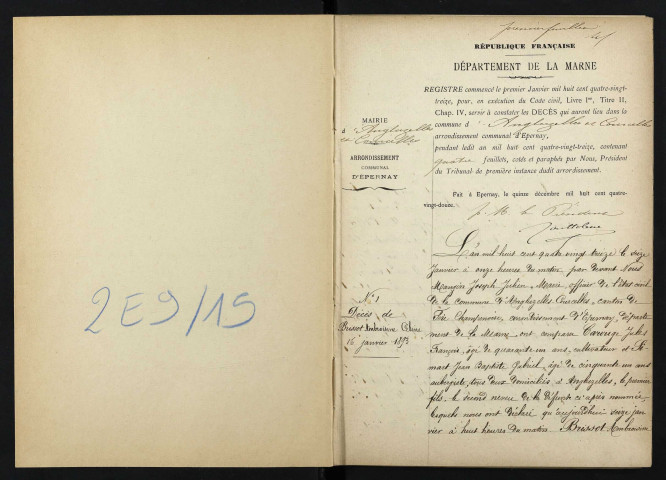 2E9/15
premier feuillet
RÉPUBLIQUE FRANÇAISE
DÉPARTEMENT DE LA MARNE
REGISTRE commencé le premier Janvier mil huit cent quatre-vingt-
treize, pour, en exécution du Code civil, Livre Ier, Titre II,
Chap. IV, servir à constater les DÉCÈS qui auront lieu dans la
commune d'Angluzelles et Courcelles
arrondissement communal d'Epernay,
pendant ledit an mil huit cent quatre-vingt-treize, contenant
quatre feuillets, cotés et paraphés par Nous, Président
du Tribunal de première instance dudit arrondissement.
Fait à Epernay, le quinze décembre mil huit cent quatre-
vingt-douze.
p. M. le Président
MAIRIE
d'Angluzelles
et Courcelles
ARRONDISSEMENT
COMMUNAL
D'EPERNAY
N° 1
Décès de
Brissot Ambroisine
16 janvier 1893
L'an mil huit cent quatre vingt treize le seize
Janvier à onze heures du matin par devant Nous
Mangin Joseph Julien Marie, officier de l'état civil
de la commune d'Angluzelles Courcelles, canton de
Fère Champenoise, arrondissement d'Epernay départe-
ment de la Marne, ont comparu Jules
François, âgé de quarante un ans, cultivateur et
Jean Baptiste Gabriel, âgé de cinquante un ans
aubergiste, tous deux domiciliés à Angluzelles, le premier
fils, le second neveu de la défunte ci-après nommée,
lesquels nous ont déclaré qu'aujourd'hui seize jan
vier à huit heures du matin Brissot Ambroisine